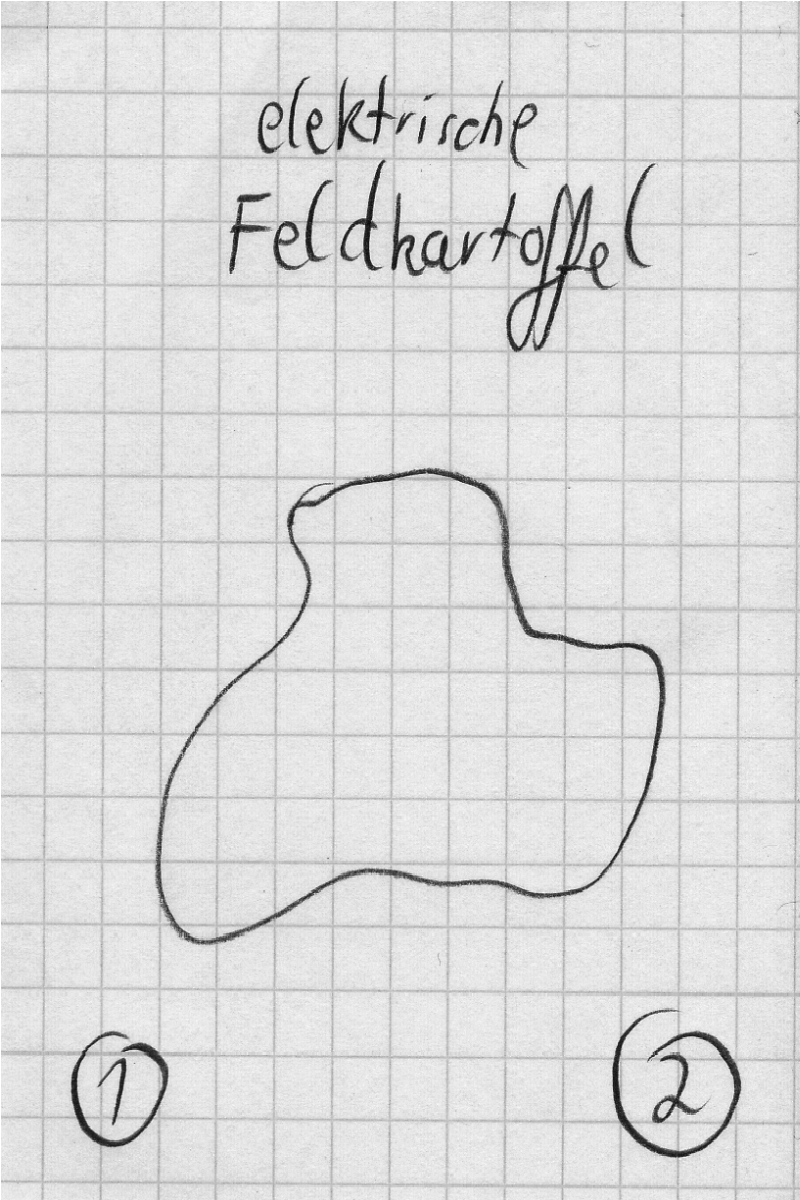 elektrische
Feldkartoffel
1 2